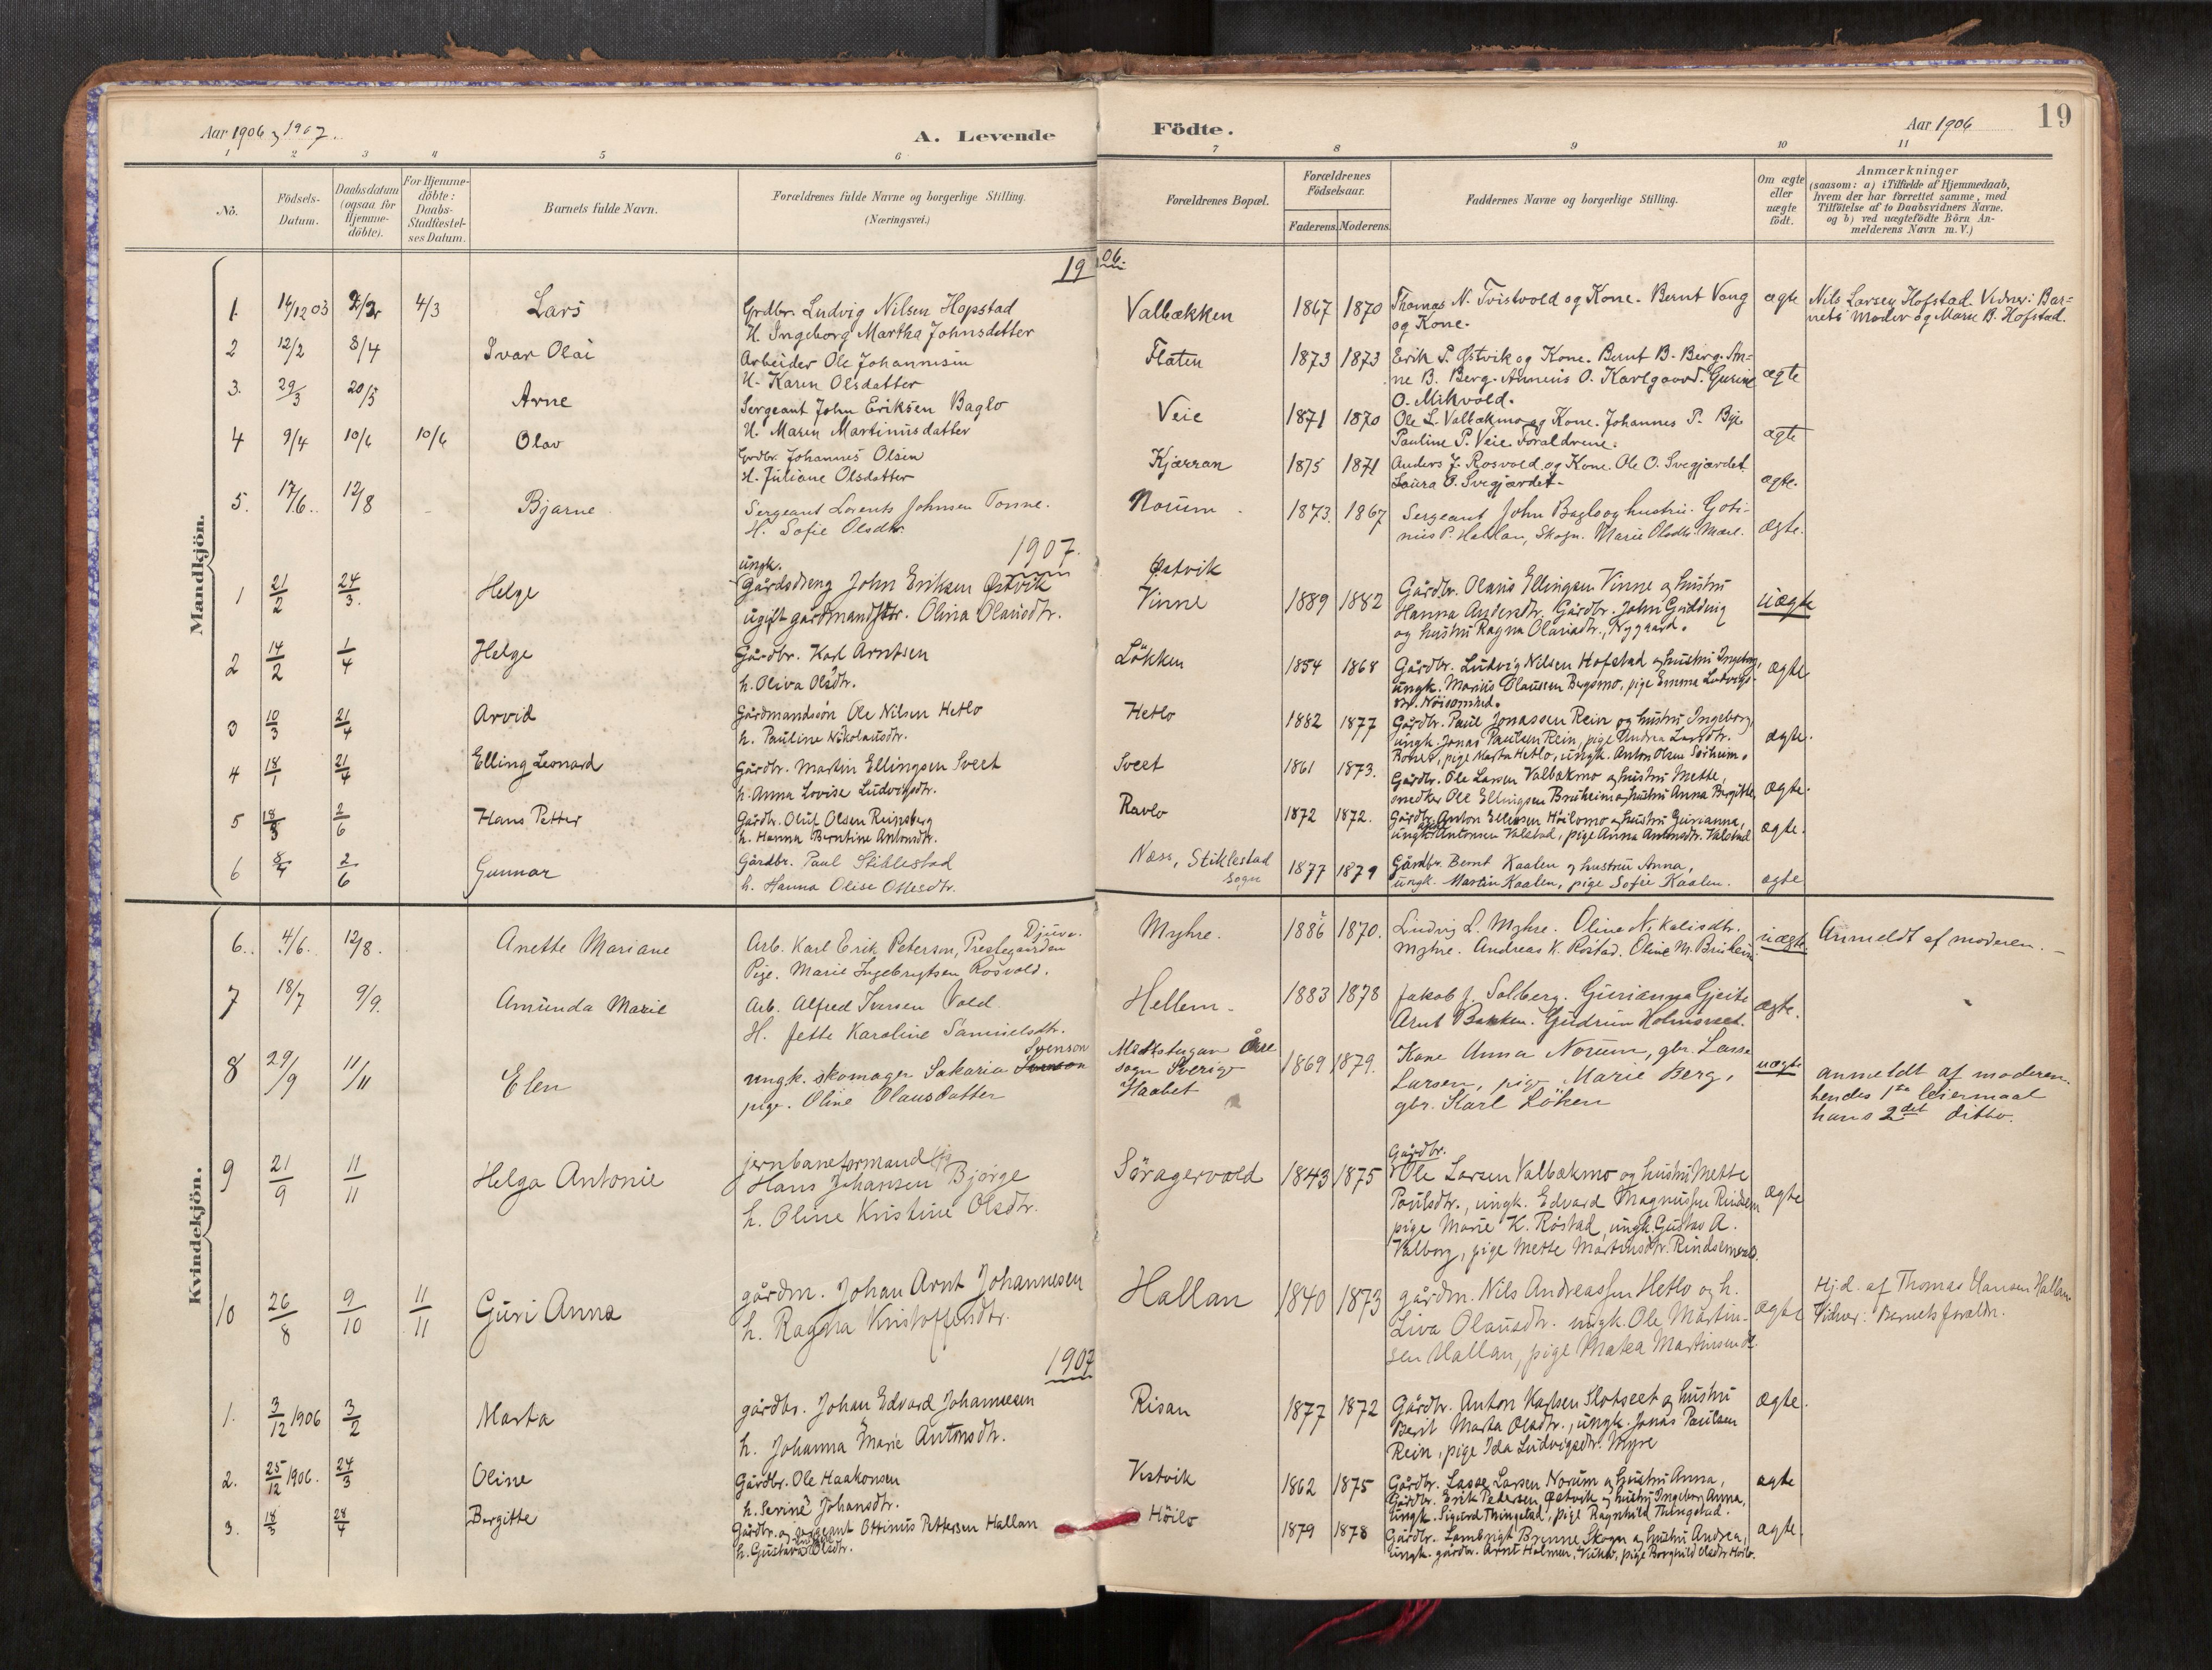 Aar 1906 og 1907.
A. Levende
Födte.
Aar 1906
19
1 2 3 4 5 6 7 8 9 10 11
No.
Födsels-
Datum.
Daabsdatum
(ogsaa för
Hjemme-
döbte).
For Hjemme-
döbte:
Daabs-
Stadfæstel-
ses Datum.
Barnets fulde Navn.
Forældrenes fulde Navne og borgerlige Stilling.
(Næringsvei.)
Forældrenes Bopæl.
Forældrenes
Födselsaar.
Faderens. Moderens.
Faddernes Navne og borgerlige Stilling.
Om ægte
eller
uægte
födt.
Anmærkninger
(saasom: a) i Tilfælde af Hjemmedaab,
hvem der har forrettet samme, med
Tilföielse af to Daabsvidners Navne.
og b) ved uægtefödte Börn An-
melderens Navn m. V.)
Mandkjön.
1906.
1. 14/12 03 4/3 Lars
Grdbr. Ludvig Nilsen Hopstad
H. Ingeborg Martha Johnsdatter
Valbækken 1867 1870
Thomas N. Tvistvold og Kone. Bernt Vang
og Kone.
ægte
Nils Larsen Hofstad. Vidner: Bar-
nets Moder og Marie B. Hofstad.
2 12/2 8/4 Ivar Olai
Arbeider Ole Johannesen
H. Karen Olsdatter
Flaten 1873 1873
Erik P. Østvik og Kone. Bernt B. Berg. An-
ne B. Berg. Annæus O. Karlgaard. Gurine
O. Mikvold.
ægte
3. 29/3 20/5 Arne
Sergeant John Eriksen Baglo
H. Maren Martinusdatter
Veie 1871 1870
Ole L. Valbækmo og Kone. Johannes P. Bye
Pauline P. Veie. Forældrene.
ægte
4 9/4 10/6 10/6 Olav
Grdbr. Johannes Olsen
H. Juliane Olsdatter
Kjærran 1875 1871
Anders J. Rosvold og Kone. Ole O. Svegjærdet
Laura O. Svegjærdet.
ægte.
5. 17/6. 12/8 Bjarne
Sergeant Lorents Johnsen Tonne.
H. Sofie Olsdtr.
Norum 1873. 1867
Sergeant John Baglo og hustru. Goti-
nius P. Hallan, Skogn. Marie Olsdtr. Mæel.
ægte.
1907.
1 21/2 24/3. Helge
ungk.
Gårdsdreng John Eriksen Østvik
ugift gårdmandsdtr. Olina Olausdtr.
Østvik
Vinne 1889 1882
Gårdbr. Olaus Ellingsen Vinne og hustru
Hanna Andersdtr. Gårdbr. John Gridding
og hustru Ragna Olariadtr., Nygaard.
uægte
2 14/2 1/4 Helge
Gårdbr. Karl Arntsen
h. Oliva Olsdtr.
Lökken 1854 1868
Gårdbr. Ludvig Nilsen Hofstad og hustru Ingeborg,
ungk. Marius Olaussen Bergsmo, pige Emma Ludvigs-
dtr. Nöisomhed.
ægte
3 10/3 21/4 Arvid
Gårdmandssön Ole Nilsen Hetlo
h. Pauline Nikolausdtr.
Hetlo 1882 1877
Gårdbr. Paul Jonassen Rein og hustru Ingeborg,
ungk. Jonas Paulsen Rein, pige Andrea Larsdtr.
pige Marta Hetlo, ungk. Anton Olsen Sörheim.
ægte.
4 18/1 21/4 Elling Leonard
Gårdbr. Martin Ellingsen Sveet
h. Anna Lovise Ludvigsdtr.
Sveet 1861 1873.
Gårdbr. Ole Larsen Valbækmo og hustru Mette,
snedker Ole Ellingsen Bruheim og hustru Anna Bergitte,
ægte.
5 18/3 2/6 Hans Petter
Gårdbr. Oluf Olsen Reinsberg
h. Hanna Berntine Antonsdtr.
Ravlo 1872 1872.
Gårdbr. Anton Ellingsen Höilomo og hustru Gurianna,
ungk. Antonsen Valstad, pige Anna Antonsdtr. Valstad
ægte.
6 8/4 2/6 Gunnar
Gårdbr. Paul Stiklestad
h. Hanna Olise Ottesdtr.
Næss, Stiklestad
Sogn
1877 1879
Gårdbr. Bernt Kaalen og hustru Anna,
ungk. Martin Kaalen, pige Sofie Kaalen.
ægte
Kvindekjön.
6. 4/6. 12/8. Anette Mariane
Djuva.
Arb. Karl Erik Peterson, Prestegården
Pige. Marie Ingebrigtsen Rosvold.
Myhre. 1886 1870.
Ludvig L. Myhre. Oline Nikolisdtr.
Myhre. Andreas K. Röstad. Oline M. Bruheim
uægte.
Anmeldt af moderen.
7 18/7 9/9. Amunda Marie
Arb. Alfred Iversen Vold.
H. Jette Karoline Samuelsdtr.
Hellem. 1883 1878
Jakob J. Solberg. Gurianna Gjeite
Arnt Bakken. Gudrun Holmsveet.
ægte.
8 29/9 11/11 Elen
Svenson
ungk. skomager Sakaria Svenson
pige. Oline Olausdatter
Mattstugan Åre
sogn Sverige
Haabet
1869 1879.
Kone Anna Norum, gbr. Lasse
Larsen, pige Marie Berg,
gbr. Karl Löken
uægte
anmeldt af moderen.
hendes 1ste leiermaal
hans 2det ditto.
9 21/9 11/11 Helga Antonie
jernbaneformand
Hans Johansen Bjørge
h. Oline Kristine Olsdtr.
Söragervold 1843 1875
Gårdbr.
Ole Larsen Valbækmo og hustru Mette
Paulsdtr., ungk. Edvard Magnussen Rindsem
pige Marie K. Röstad, ungk. Gustav A.
Valborg, pige Mette Martinsdtr. Rindsemvald.
ægte
10 26/8 9/10 11/11 Guri Anna
gårdm. Johan Arnt Johannesen
h. Ragna Kristoffersdtr.
Hallan 1840 1873
gårdm. Nils Andreassen Hetlo og h.
Liva Olausdtr. ungk. Ole Martin-
sen Hallan, pige Matea Martinsendtr.
ægte
Hj.d. af Thomas Hansen Hallan.
Vidner: Barnets forældre.
1907
1. 3/12 1906 3/2 Marta
gårdbr. Johan Edvard Johannesen
h. Johanna Marie Antonsdtr.
Risan 1877 1872
Gårdbr. Anton Karlsen Slotsveet og hustru
Berit Marta Olsdtr., ungk. Jonas Paulsen
Rein, pige Ida Ludvigsdtr. Myre
ægte.
2. 25/12 1906. 24/3 Oline
Gårdbr. Ole Haakonsen
h. Serine Johansdtr.
Vestvik 1862 1875
Gårdbr. Lasse Larsen Norum og hustru Anna,
Gårdbr. Erik Petersen Østvik og hustru Ingeborg Anna,
ungk. Sigurd Thingstad, pige Ragnhild Thingstad.
ægte
3. 18/3 28/4 Bergitte
Gårdbr. og sergeant Ottinus Pettersen Hallan
h. Gustava Olsdtr.
Höilo 1879 1878
Gårdbr. Lambrigt Brenne Skogn og hustru Andrea,
ungk. gårdbr. Arnt Holmen, Vukku, pige Borghild Olsdtr. Höilo.
ægte.